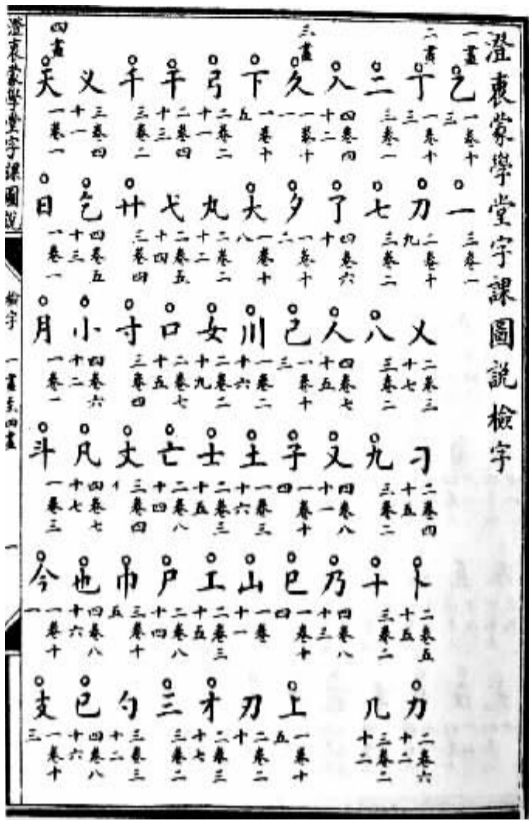 澄衷蒙學堂字課圖說檢字
一畫 乙 一卷十三 一 三卷一
二畫 丁 一卷十三 刀 二卷十九 乂 二卷三十七 刁 二卷四十五 卜 二卷五十五 力 二卷六十二
二 三卷一 七 三卷二 八 三卷二 九 三卷二 十 三卷二 几 三卷二十二
入 四卷四十二 了 四卷六十 人 四卷七十五 又 四卷八十一 乃 四卷八十三
三畫 久 一卷十一 夕 一卷十二 己 一卷十三 子 一卷十四 巳 一卷十四 上 一卷十五
下 一卷十五 大 一卷十八 川 一卷二十六 土 一卷三十六 山 一卷十一 刃 二卷二十
弓 二卷二十一 丸 二卷二十二 女 二卷二十九 士 二卷三十五 工 二卷三十五 才 二卷三十七
干 二卷四十三 弋 二卷五十四 口 二卷七十五 亡 二卷八十四 尸 二卷八十四 三 三卷二
千 三卷二 廿 三卷四 寸 三卷四 丈 三卷四 巾 三卷十五 勺 三卷三十二
义 三卷四十一 乞 四卷五十三 小 四卷六十二 凡 四卷七十七 也 四卷八十六 已 四卷八十六
四畫 天 一卷一 日 一卷一 月 一卷一 斗 一卷三 今 一卷十一 支 一卷十三
澄衷蒙學堂字課圖說 檢字 一畫至四畫 一